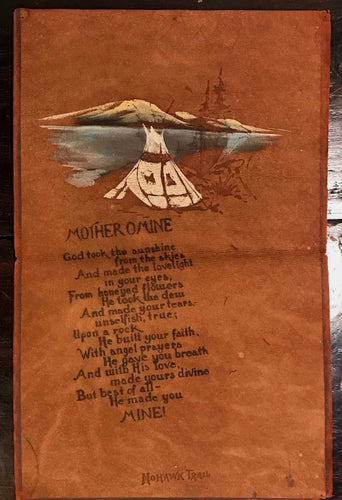 MOTHER O MINE
God took the sunshine
from the skies
And made the lovelight
in your eyes;
From honeyed flowers
He took the dew
And made your tears.
unselfish, true;
Upon a rock
He built your faith.
With angel prayers
He gave you breath
And with His love,
made yours divine
But best of all—
He made you
MINE!
MOHAWK TRAIL